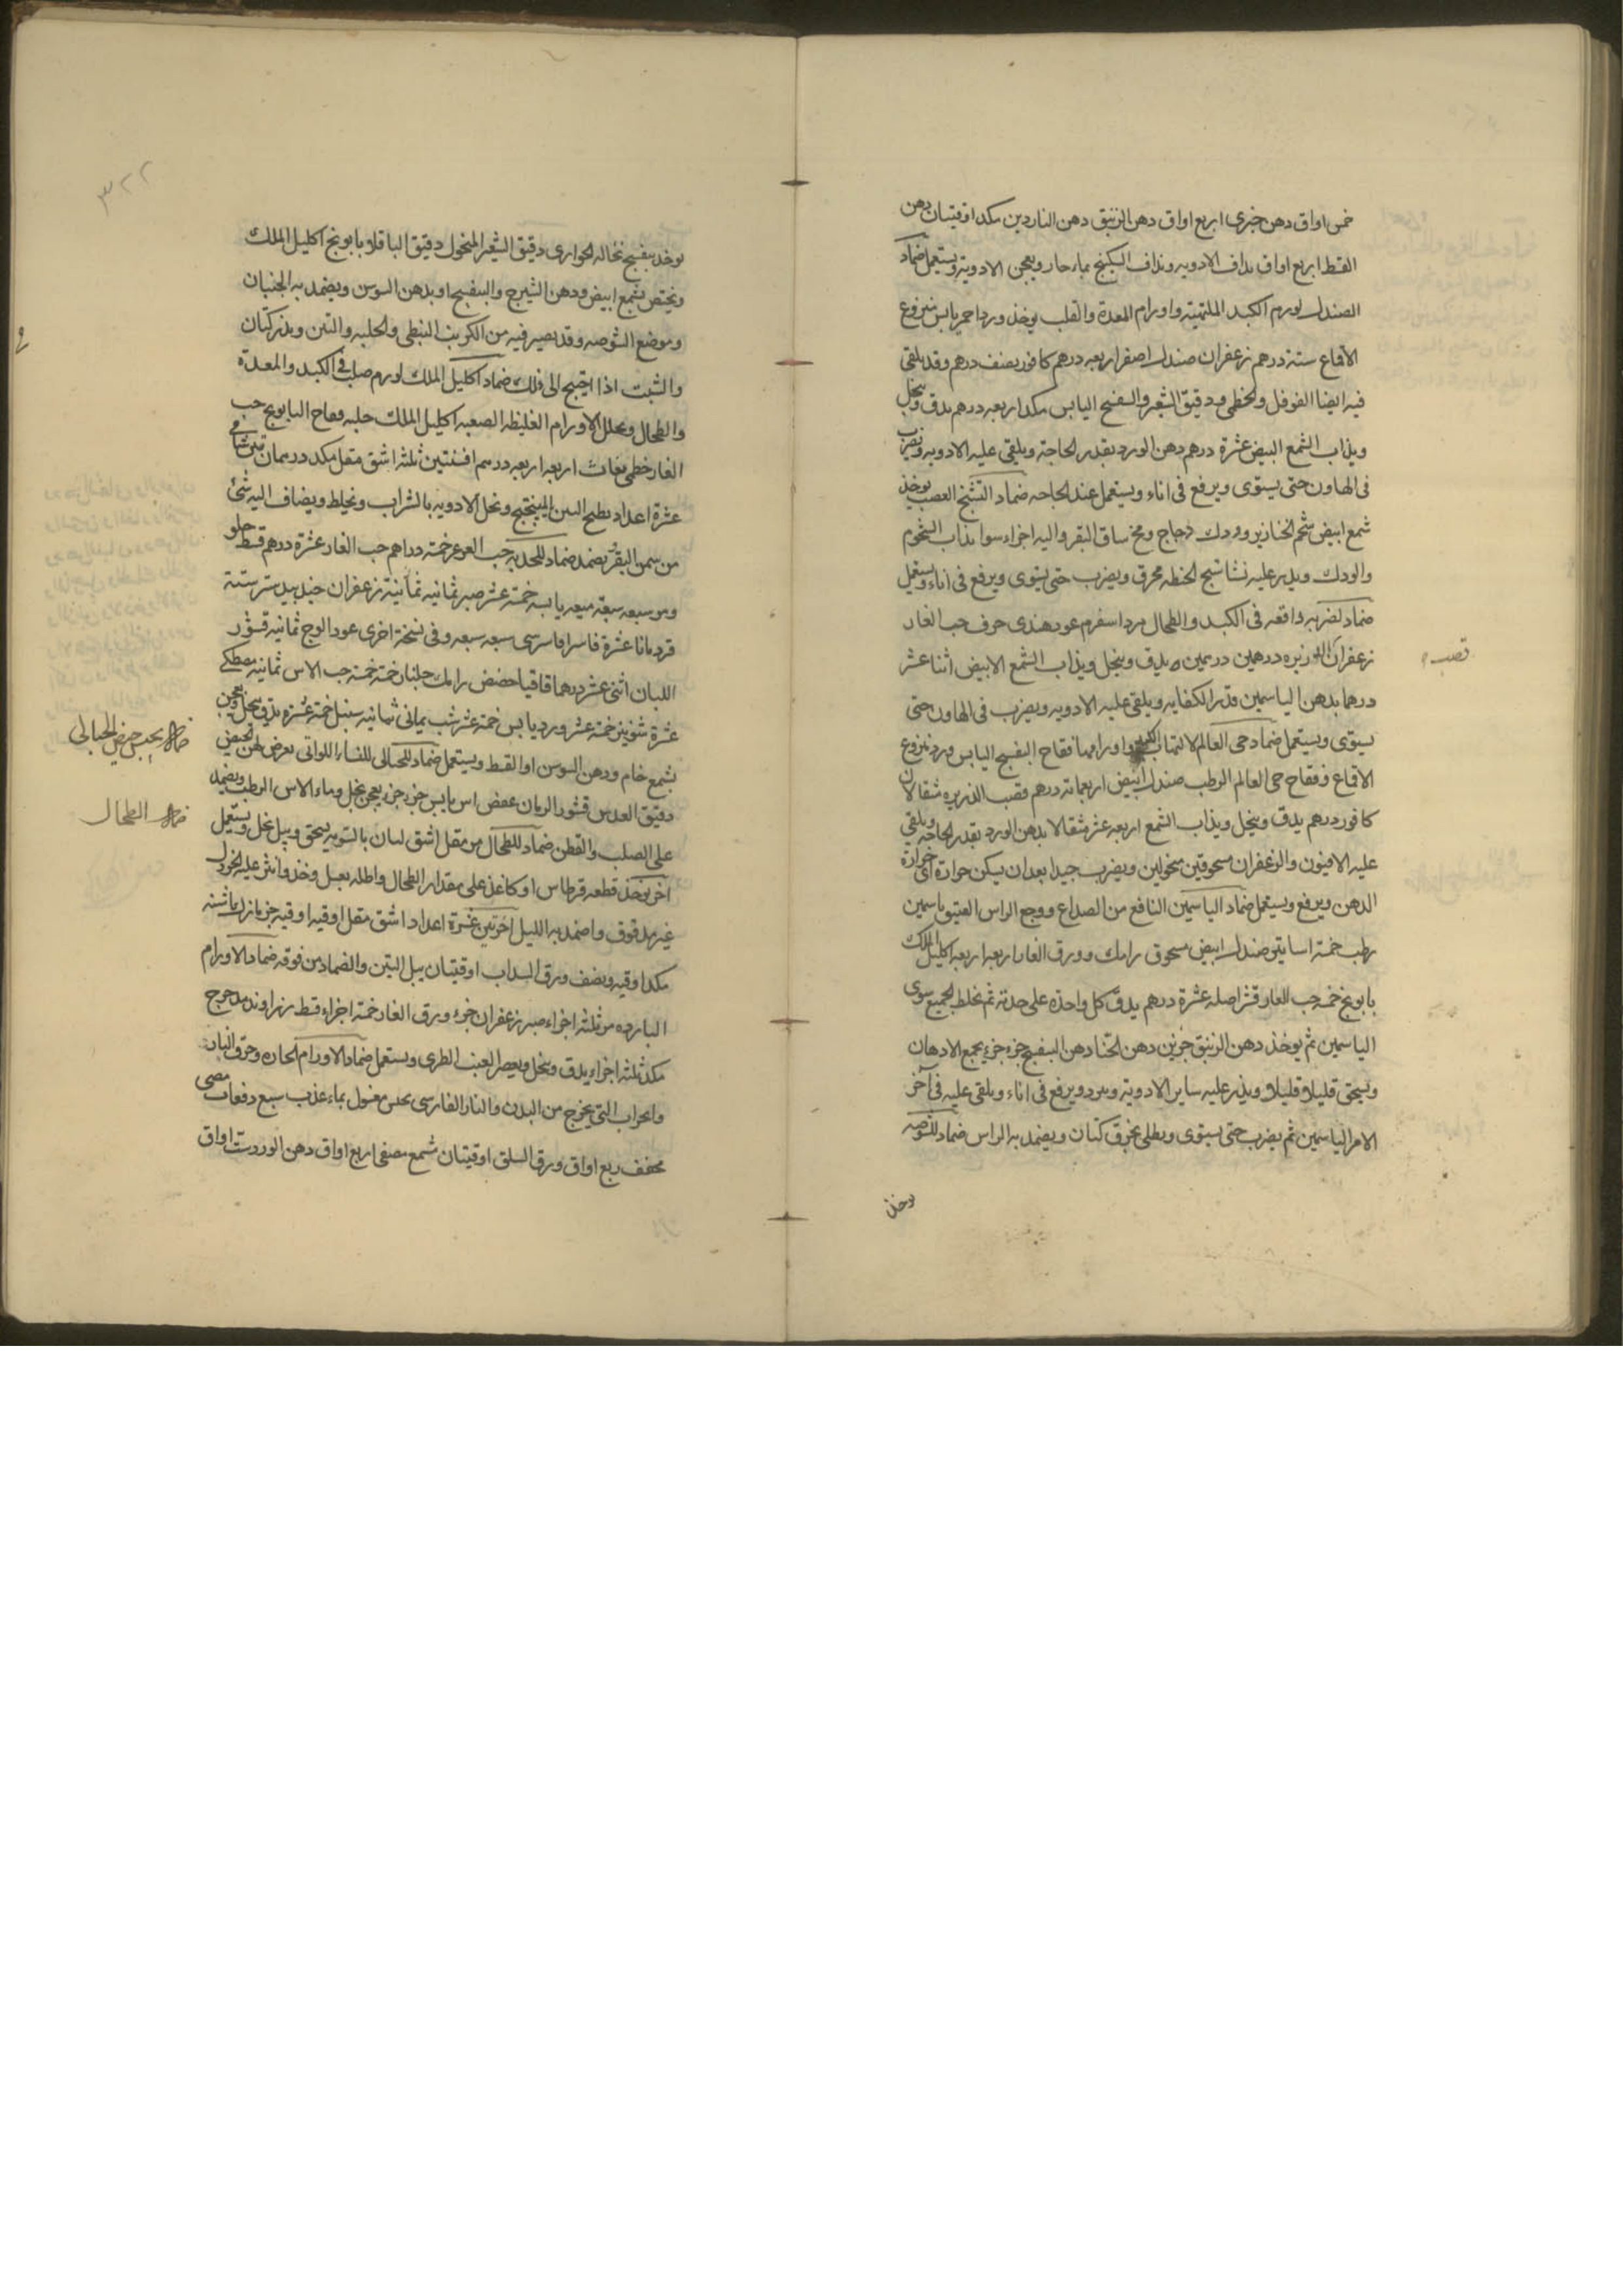 خمس اواق دهن خيرى اربع اواق دهن الزنبق دهن الناردين مكد اوقيتان دهن
القسط اربع اواق يداف الادويه ويذاف السكبنج بماء حار ويعجن الادوية ويستعمل ضماد
الصندل لورم الكبد الملتهبة واورام المعدة والقلب يوخذ ورد احمر يابس منزوع
الاقماع ستة درهم زعفران صندل اصفر اربعه درهم كافور نصف درهم وقد يلقى
فيه ايضا الفوفل والخطمى ودقيق الشعير والبنفسج اليابس مكد اربعه درهم يدق وينخل
ويذاب الشمع البيض عشرة درهم دهن الورد بقدر الحاجة ويلقى عليه الادويه ويضرب
فى الهاون حتى يستوى ويرفع فى اناء ويستعمل عند الحاجه ضماد التشنج العصب يوخذ
شمع ابيض شحم الخنازير وودك دجاج ومخ ساق البقر واليه اجزاء سوا يذاب الشحوم
والودك ويذر عليه نشاستج الحنطه محرق ويضرب حتى يستوى ويرفع فى اناء ويستعمل
ضماد لضربه واقعه فى الكبد والطحال مرداسفرم عود هندى حرف حب الغار
زعفران الذريره درهمين درهمين يدق وينخل ويذاب الشمع الابيض اثنا عشر
قصب
درهما بدهن الياسمين قدر الكفايه ويلقى عليه الادويه ويضرب فى الهاون حتى
يستوى ويستعمل ضماد حى العالم لالتهاب الكبد واورامها فقاح البنفسج اليابس ورد منزوع
الاقماع وفقاح حى العالم الرطب صندل ابيض اربعمائه درهم قصب الذريره مثقالان
كافور درهم يدق وينخل ويذاب الشمع اربعه عشر مثقالا بدهن الورد بقدر الحاجه ويلقى
عليه الافيون والزعفران مسحوقين منخولين ويضرب جيدا بعد ان يسكن حرارة اى حرارة
الدهن ويرفع ويستعمل ضماد الياسمين النافع من الصداع ووجع الراس العتيق ياسمين
رطب خمسة اساتير صندل ابيض مسحوق رامك وورق الغار اربعه اربعه اكليل الملك
بابونج خمسه حب الغار قشر اصله عشرة درهم يدق كل واحدة على حدته ثم يخلط الجميع سوى
الياسمين ثم يوخذ دهن الزنبق جزين دهن الحنا دهن البنفسج جزء جزء يجمع الادهان
ويسحق قليلا قليلا ويذر عليه ساير الادوية ويبرد ويرفع فى اناء ويلقى عليه فى آخر
الامر الياسمين ثم يضرب حتى يستوى ويطلى بخرق كتان ويضمد به الراس ضماد للشوصه
يوخذ
٣٢٢
يوخذ بنفسج نخاله الحوارى دقيق الشعير المنخول دقيق الباقلا وبابونج اكليل الملك
ويختص بشمع ابيض ودهن الشيرج والبنفسج او بدهن السوسن ويضمد به الجنبان
وموضع الشوصه وقد يصير فيه من الكرنب النبطى والحلبه والتين وبزر كتان
والشبت اذا احتيج الى ذلك ضماد اكليل الملك لورم صلب فى الكبد والمعدة
والطحال ويحلل الاورام الغليظه الصعبه اكليل الملك حلبه وفقاح البابونج حب
الغار خطمى مغاث اربعه اربعه درهم افسنتين ثلثه اشق مقل مكد درهمان تين شامى
عشرة اعداد يطبخ التين بالميبختج وتحل الادويه بالشراب ويخلط ويضاف اليه شئ
من سمن البقر يضمد ضماد للمعده حب العرعر خمسة دراهم حب الغار عشرة درهم قسط حلو
ومر سبعه سبعه ميعه يابسه خمسة عشر صبر ثمانيه ثمانية زعفران جندبيدستر ستة ستة
قردمانا عشرة فاسرا فاسرسى سبعه سبعه وفى نسخة اخرى عود الوج ثمانيه قشور
اللبان اثنى عشر درهما قاقيا حضض رامك جلنار خمسة خمسة حب الاس ثمانيه مصطكى
عشرة شونيز خمسة عشر ورد يابس خمسة عشر شب يمانى ثمانيه سنبل خمسة عشره يدق ينخل ويعجن
بشمع خام ودهن السوسن او القسط ويستعمل ضماد للحبالى للنساء اللواتى يعرض لهن الحيض
ضماد يحبس حيض الحبالى
دقيق العدس قشور الرمان عفص اس يابس جزء جزء يعجن بخل وماء الاس الرطب ويضمد
على الصلب والقطن ضماد للطحال من مقل اشق لبان بالسويه يسحق ويبل بخل ويستعمل
ضماد الطحال
آخر يوخذ قطعه قرطاس او كاغذ على مقدار الطحال واطله بعسل وخذ وانثر عليه الخردل
غير مدقوق واضمد به الليل آخر تين عشرة اعداد اشق مقل اوقيه اوقيه
مكد اوقيه ونصف ورق السداب اوقيتان يبل التين والضماد من فوقه ضماد الاورام
البارده مر ثلثه اجزاء صبر زعفران جزء ورق الغار خمسة اجزاء قسط زراوند مدحرج
مكد ثلثه اجزاء يدق وينخل ويعصر العنب الطرى ويستعمل ضماد الاورام الحاره وحرق النار
والجراب التى يخرج من البدن والنار الفارسى مغسول بماء عذب سبع دفعات
مجفف ربع اواق ورق السلق اوقيتان شمع مصفى اربع اواق دهن الورد ست اواق